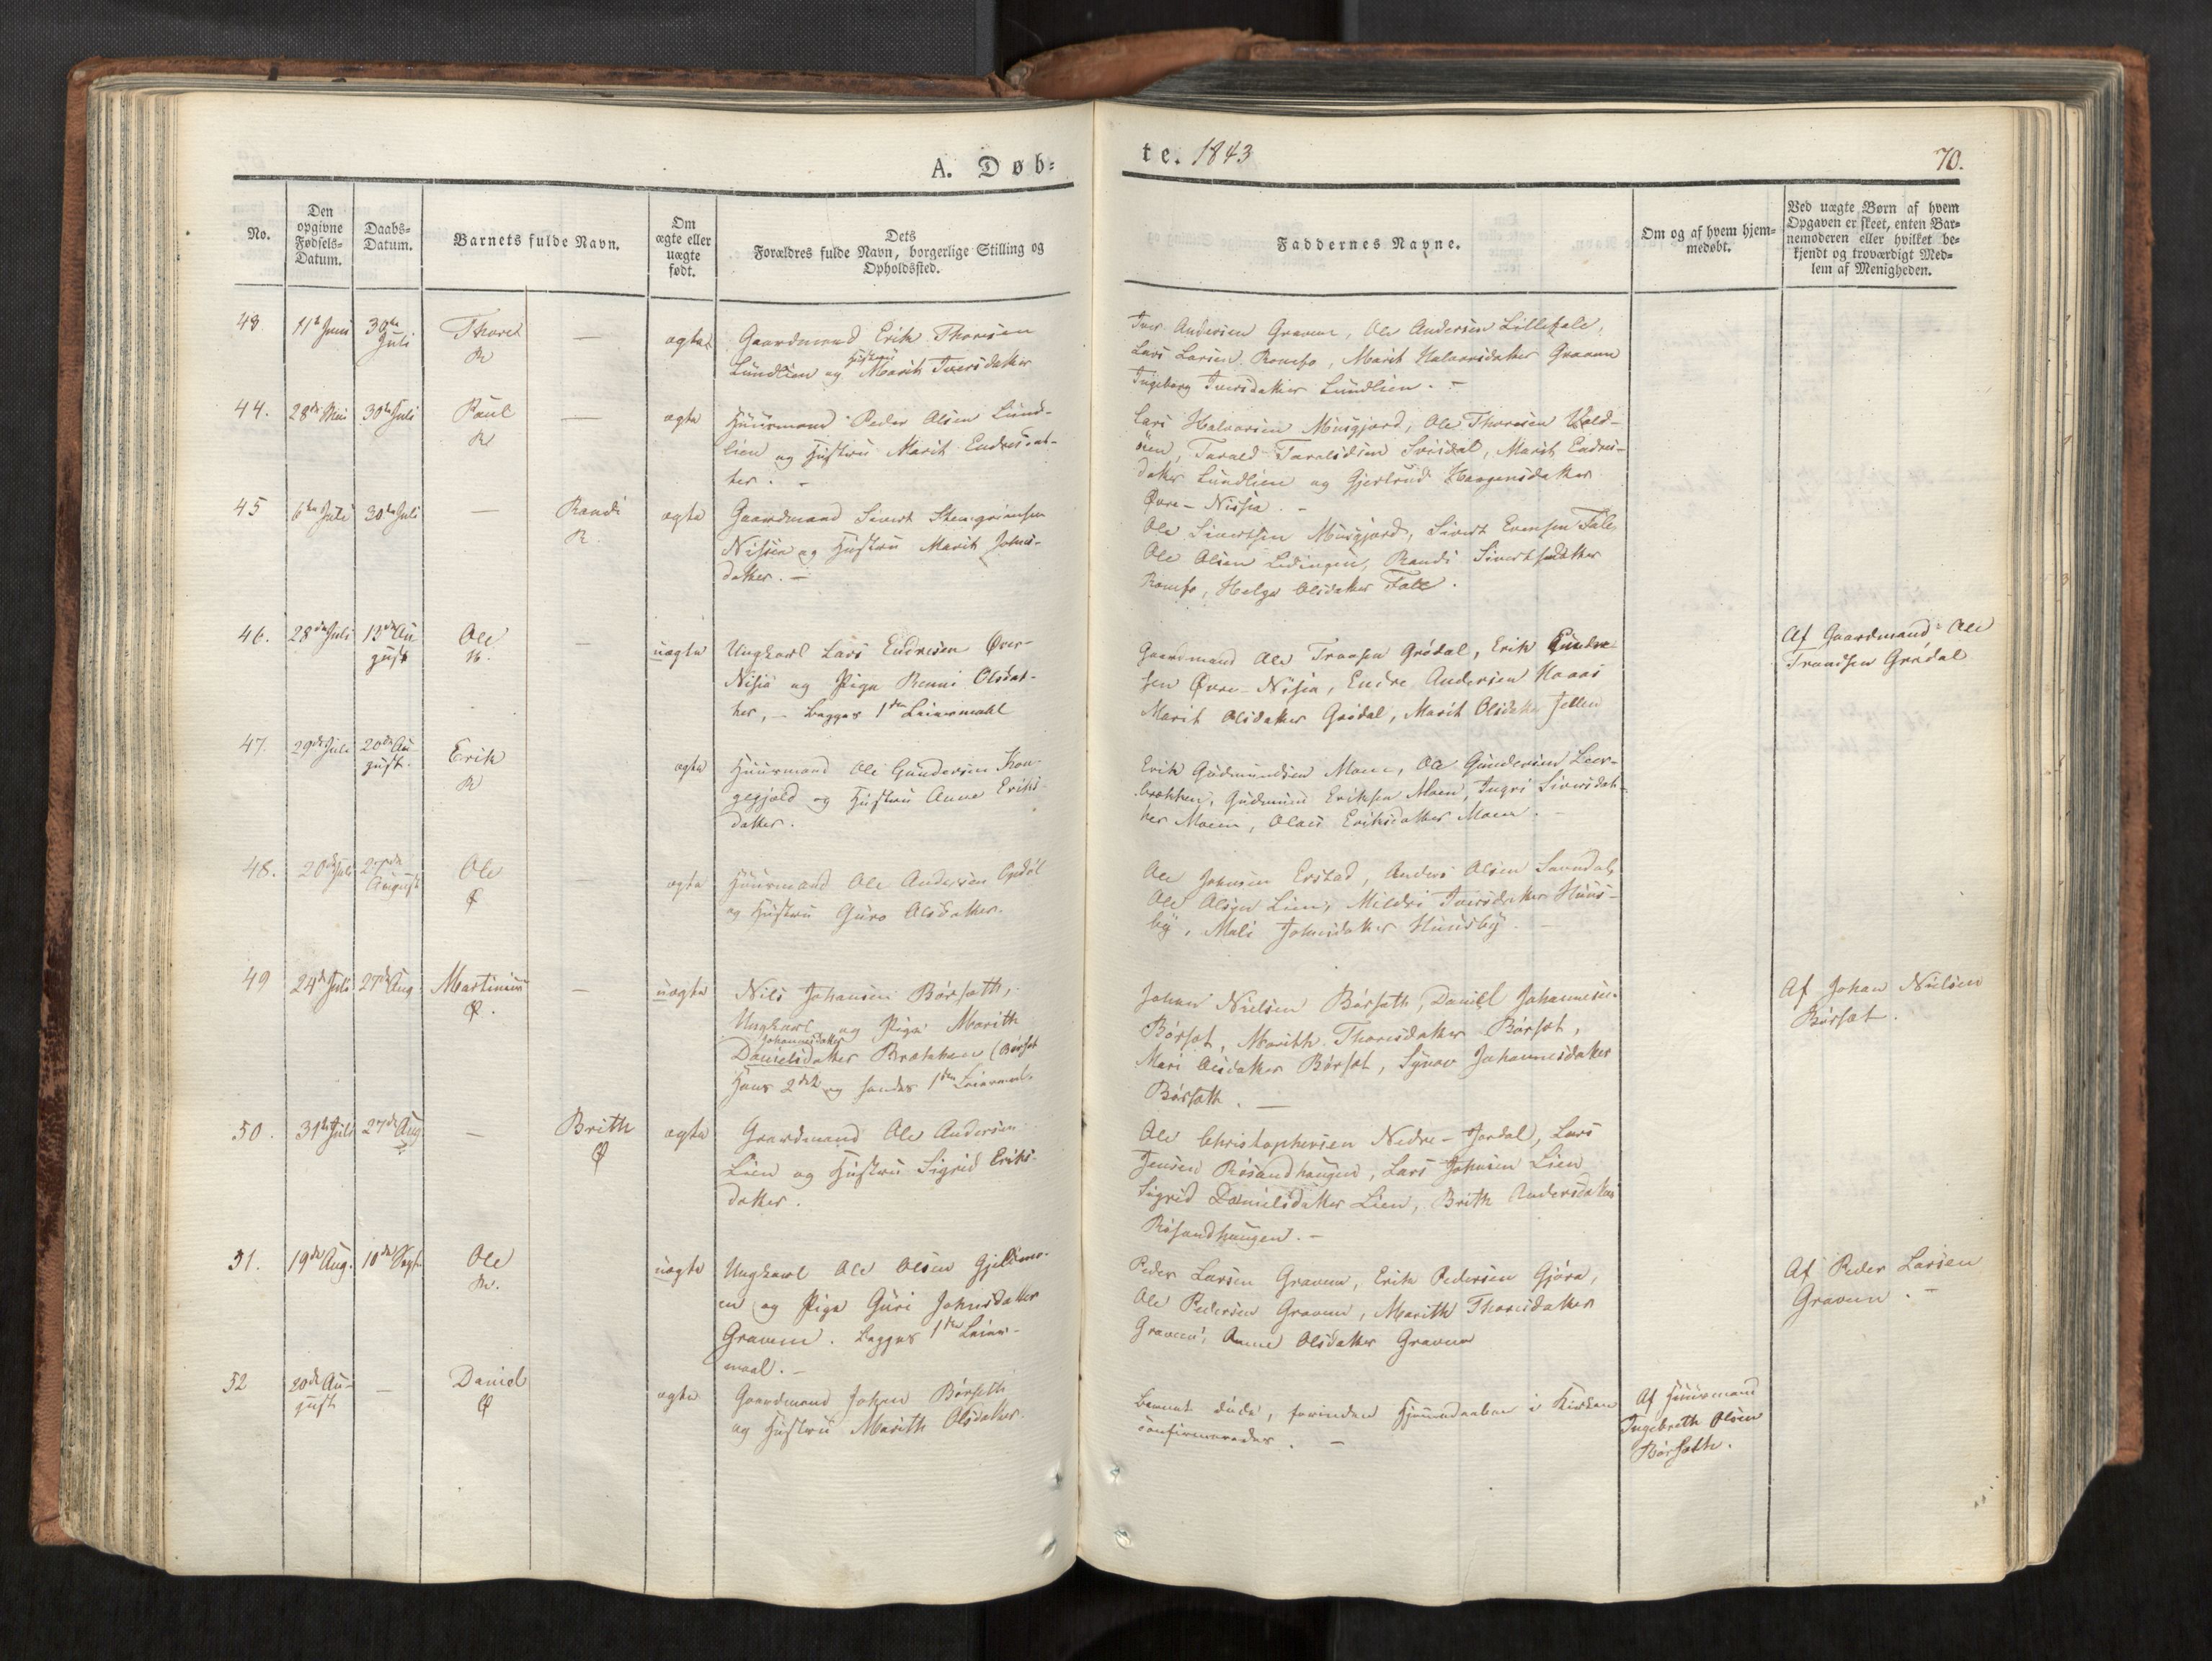 A. Døb=
te. 1843
70.
No.
Den opgivne Fødsels=Datum.
Daabs=Datum.
Barnets fulde Navn.
Om ægte eller uægte født.
Dets Forældres fulde Navn, borgerlige Stilling og Opholdssted.
Faddernes Navne.
Om og af hvem hjem=medøbt.
Ved uægte Børn af hvem Opgaven er skeet, enten Bar=nemoderen eller hvilket be=kjendt og troværdigt Med=lem af Menigheden.
43. 11te Juni 30te Juli Thoret R — ægte
Gaardmand Erik Thoresen
Lundlien og Hustru Marit Iversdatter
Iver Andersen Gravem, Ole Andersen Lillefale,
Lars Larsen Romfo, Marit Halvorsdatter Gravem
Ingeborg Iversdatter Lundlien. —
44. 28de Mai 30te Juli Paul R — ægte
Huusmand Peder Olsen Lund-
lien og Hustru Marit Endresdat-
ter. —
Lars Halvorsen Musgjerd, Ole Thoresen Vold-
Tarald Taraldsen Svisdal, Marit Endres-
datter Lundlien og Gjertrud Haagensdatter
Øvre-Nisja. —
45 6te Juli 30te Juli — Randi R. ægte
Gaardmand Sivert Stengrimsen
Nisja og Hustru Marit Johns-
datter. —
Ole Sivertsen Musgjerd, Sivert Evensen Fale,
Ole Olsen Ledingen, Randi Sivertsdatter
Romfo, Helga Olsdatter Fale.
46. 28de Juli 13de August Ole R. — uægte
Ungkarl Lars Endresen Øver-
Nisja og Pige Renni Olsdat-
ter, — begges 1ste Leiermaal
Gaardmand Ole Troensen Grødal, Erik Gundersen
Øvre-Nisja, Endre Andersen Haaas
Marit Olsdatter Grødal, Marit Olsdatter Jellen
Af Gaardmand Ole
Trondsen Grødal
47. 29de Juli 20de August. Erik R ægte
Huusmand Ole Gundersen Kon-
gsgjeld og Hustru Anne Eriks-
datter.
Erik Gudmundsen Moen, Ole Gundersen Leer-
brækken, Gudmund Eriksen Moen, Ingri Siversdat-
ter Moen, Olau Eriksdatter Moen. —
48. 20de Juli 27de August Ole Ø — ægte
Huusmand Ole Andersen Opdøl
og Hustru Guro Olsdatter.
Ole Johnsen Erstad, Anders Olsen Sunndal,
Ole Olsen Lien, Mildri Iversdatter Huus-
by, Mali Johnsdatter Huusby. —
49 24de Juli 27de Aug. Martinus Ø. — uægte
Nils Johansen Børsæth,
Ungkarl og Pige Marith
Johannesdatter
Danielsdatter Brækken (Børset
Hans 2det og hendes 1ste Leiermaal.
Johan Nielsen Børsæth, Daniel Johannesen
Børset, Marith Thoresdatter Børset,
Mari Olsdatter Børset, Synnev Johannesdatter
Børsæth. —
Af Johan Nielsen
Børsæt.
50. 31te Juli 27de Aug. — Brith Ø ægte
Gaardmand Ole Andersen
Lien og Hustru Sigrid Eriks-
datter.
Ole Christophersen Nedre-Jordal, Lars
Jensen Røsandhaugen, Lars Johnsen Lien
Sigrid Danielsdatter Lien, Brith Andersdatter
Røsandhaugen. —
51. 19de Aug. 10de Sept. Ole R. uægte
Ungkarl Ole Olsen Gjeldmo-
en og Pige Guri Johnsdatter
Gravem. begges 1ste Leier-
maal. —
Peder Larsen Gravem, Erik Pedersen Gjøra,
Ole Pedersen Gravem, Marith Thoresdatter
Gravem, Anne Olsdatter Gravem
Af Peder Larsen
Gravem. —
52 20de August — Daniel Ø ægte
Gaardmand Johan Børseth
og Hustru Marith Olsdatter.
Barnet døde, forinden Hjemmedaaben i Kirken
confirmeredes. —
Af Huusmand
Ingebreth Olsen
Børsæth.